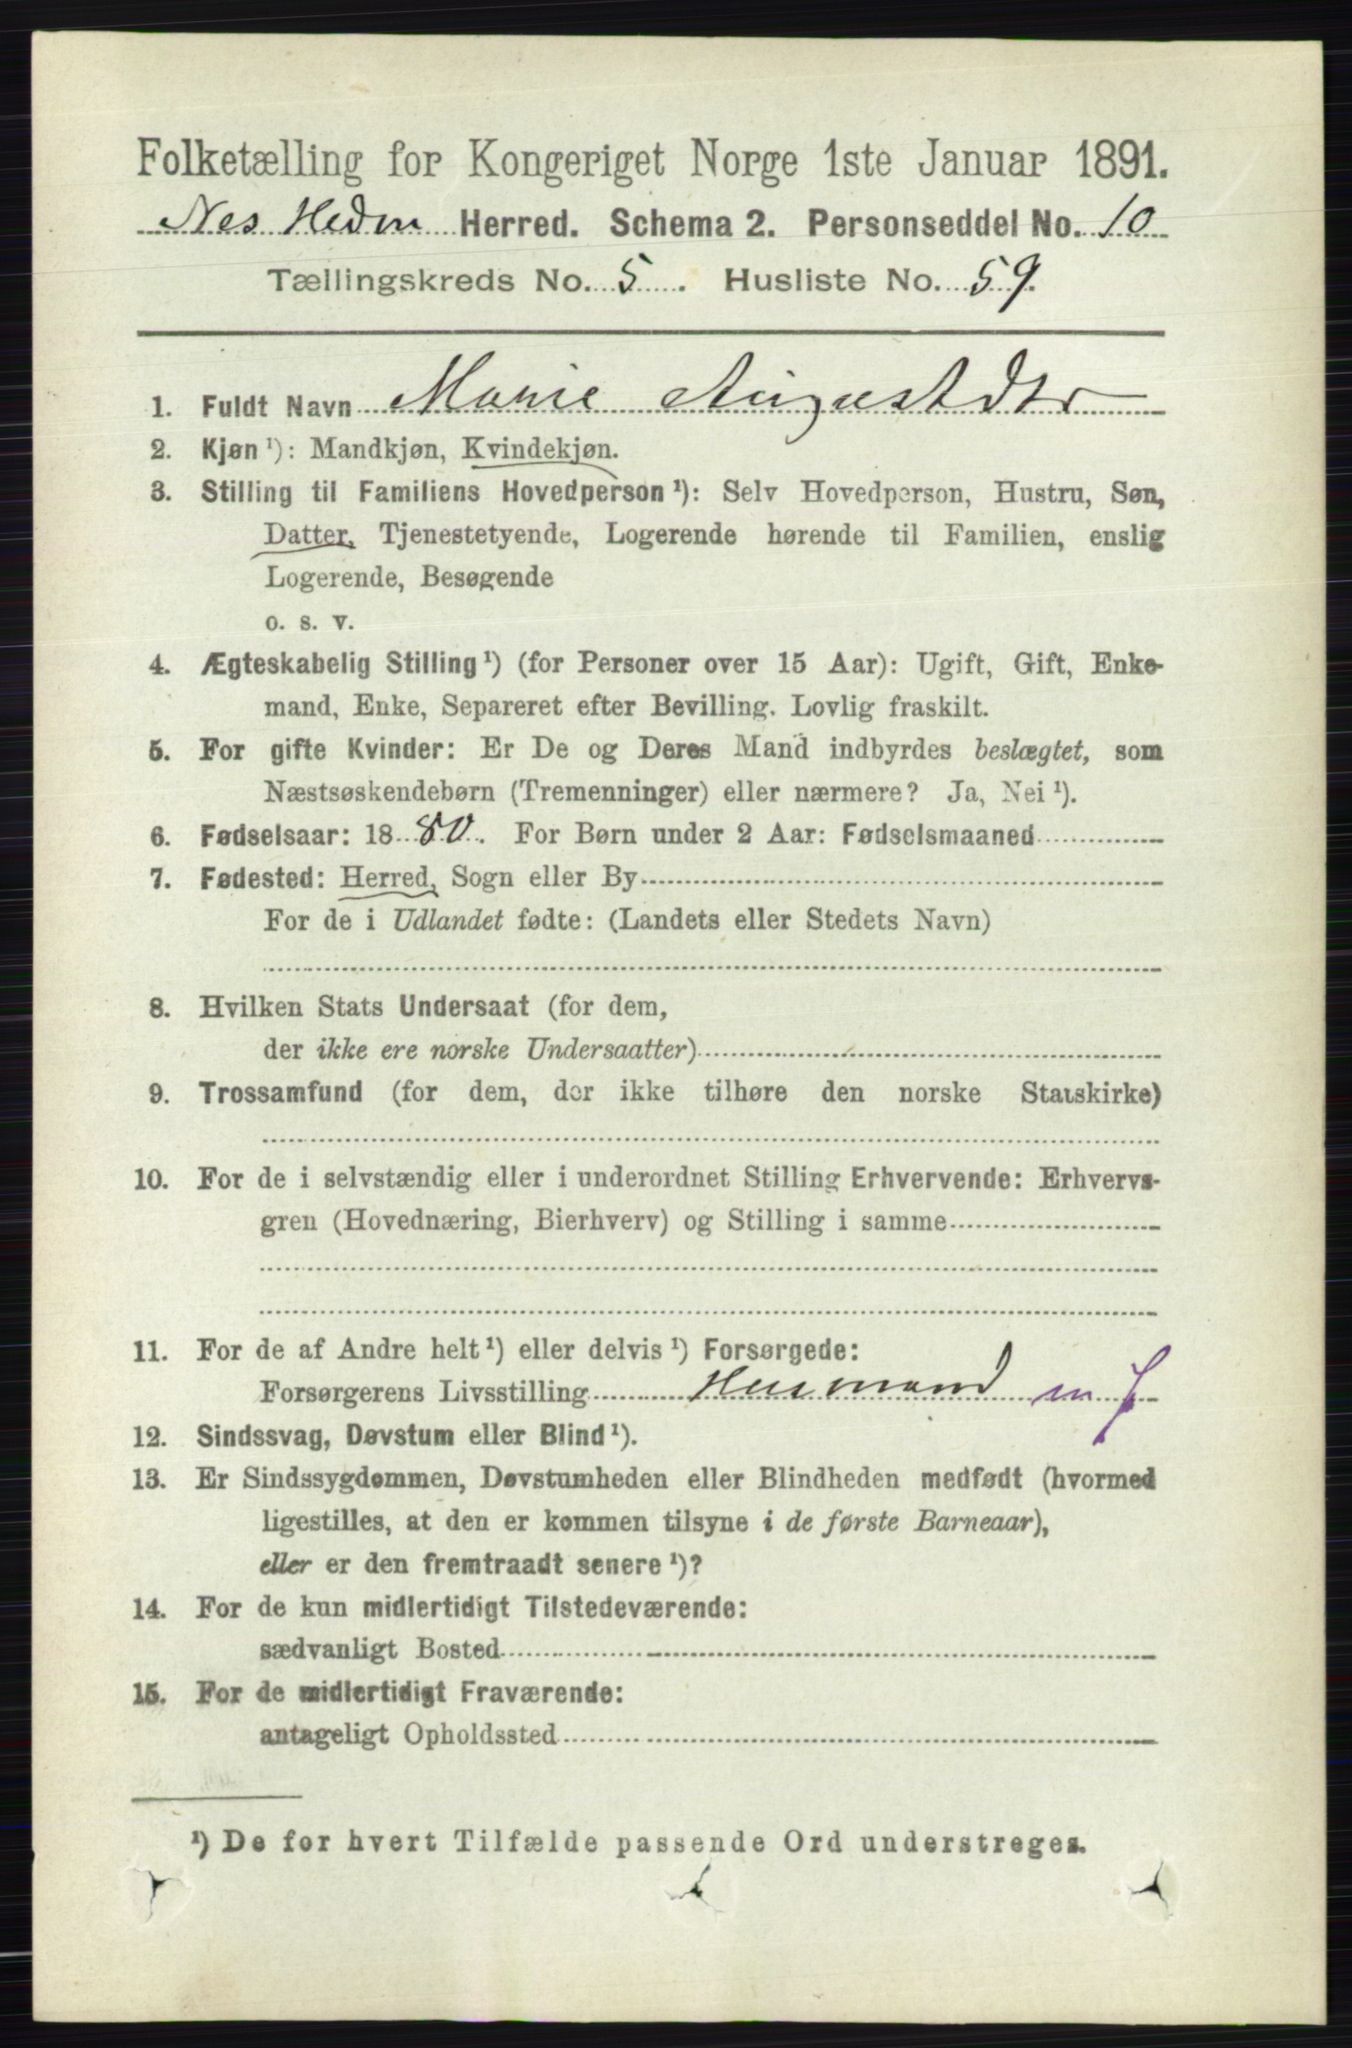 Folketælling for Kongeriget Norge 1ste Januar 1891.
Nes Hedm Herred. Schema 2. Personseddel No. 10
Tællingskreds No. 5. Husliste No. 59.
1. Fuldt Navn Marie Augustdtr
2. Kjøn ¹): Mandkjøn, Kvindekjøn.
3. Stilling til Familiens Hovedperson ¹): Selv Hovedperson, Hustru, Søn,
Datter, Tjenestetyende, Logerende hørende til Familien, enslig
Logerende, Besøgende
o. s. v.
4. Ægteskabelig Stilling ¹) (for Personer over 15 Aar): Ugift, Gift, Enke-
mand, Enke, Separeret efter Bevilling. Lovlig fraskilt.
5. For gifte Kvinder: Er De og Deres Mand indbyrdes beslægtet, som
Næstsøskendebørn (Tremenninger) eller nærmere? Ja, Nei ¹).
6. Fødselsaar: 1880. For Børn under 2 Aar: Fødselsmaaned
7. Fødested: Herred, Sogn eller By
For de i Udlandet fødte: (Landets eller Stedets Navn)
8. Hvilken Stats Undersaat (for dem,
der ikke ere norske Undersaatter)
9. Trossamfund (for dem, der ikke tilhøre den norske Statskirke)
10. For de i selvstændig eller i underordnet Stilling Erhvervende: Erhvervs-
gren (Hovednæring, Bierhverv) og Stilling i samme
11. For de af Andre helt ¹) eller delvis ¹) Forsørgede:
Forsørgerens Livsstilling Husmand m J
12. Sindssvag, Døvstum eller Blind ¹).
13. Er Sindssygdommen, Døvstumheden eller Blindheden medfødt (hvormed
ligestilles, at den er kommen tilsyne i de første Barneaar),
eller er den fremtraadt senere ¹)?
14. For de kun midlertidigt Tilstedeværende:
sædvanligt Bosted
15. For de midlertidigt Fraværende:
antageligt Opholdssted
¹) De for hvert Tilfælde passende Ord understreges.